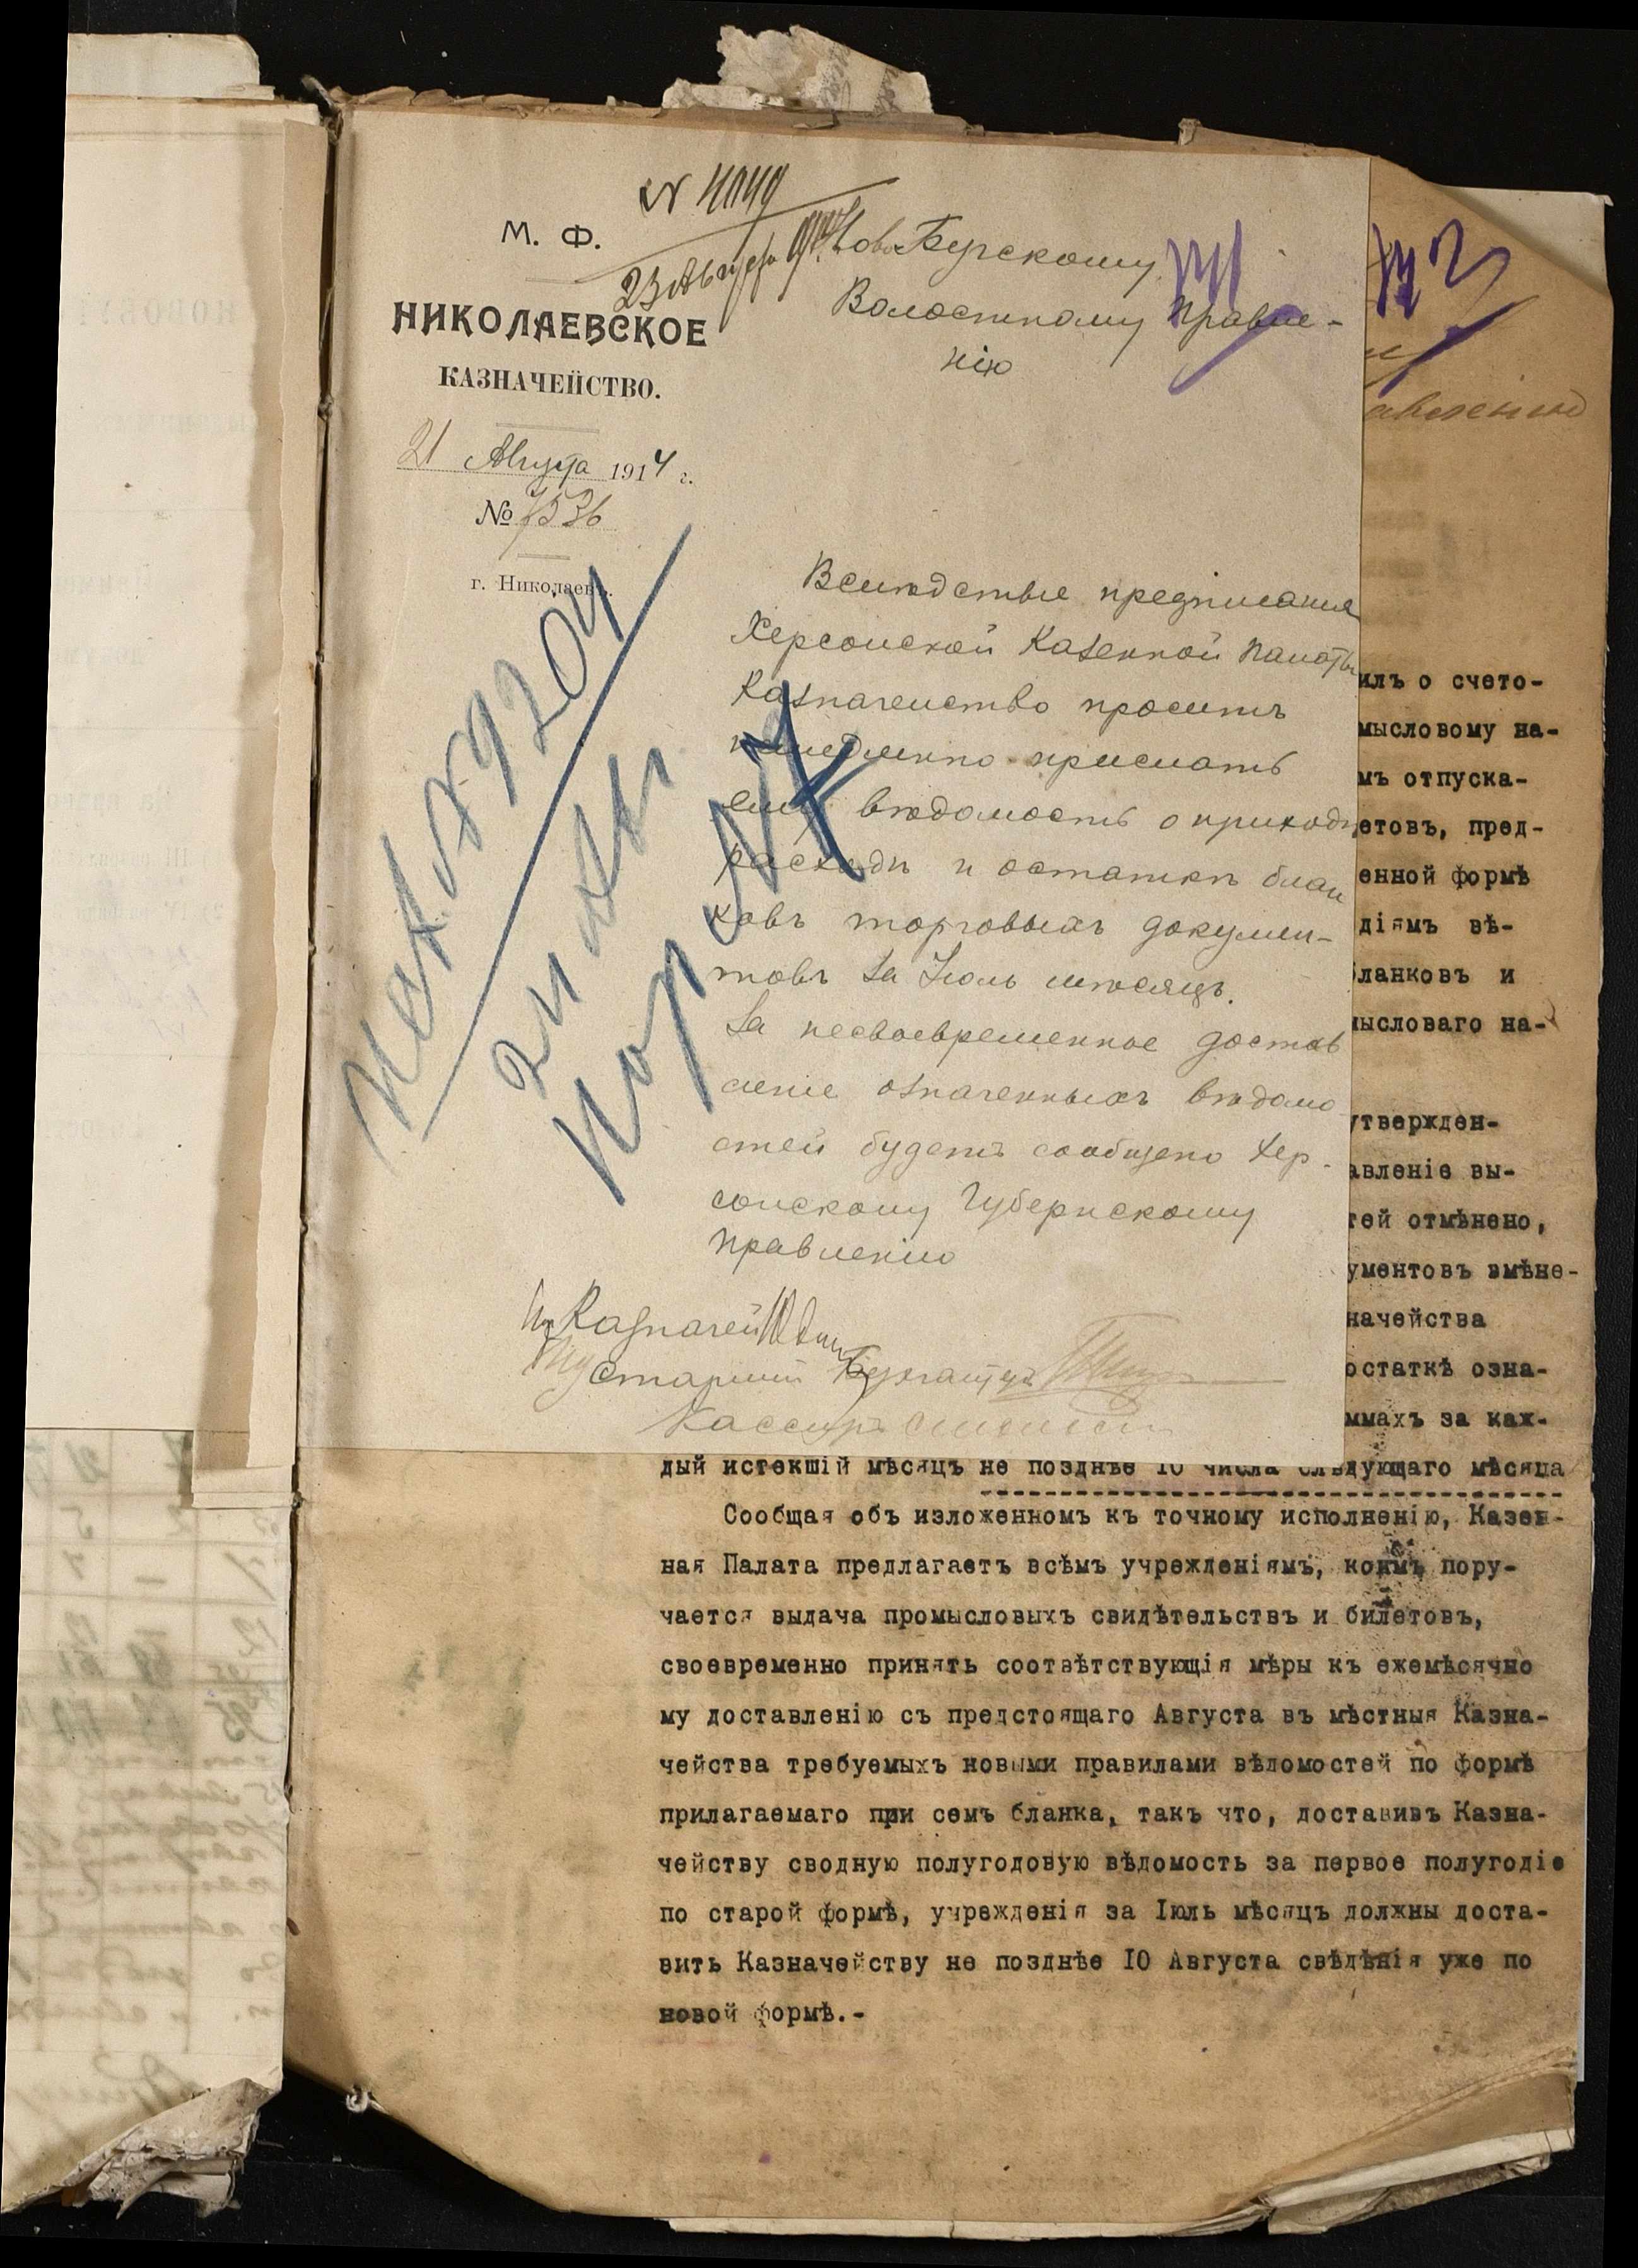 М. Ф.
НИКОЛАЕВСКОЕ
КАЗНАЧЕЙСТВО.
21 Августа 1914 г.
№ 7536
г. Николаевъ.
23 Августа
Ново Бугскому
Волостному Правле-
нію
Вслѣдствіе предписанія
Херсонской Казенной Палаты
Казначейство проситъ
немедленно прислать
ему вѣдомость о приходѣ
расходѣ и остаткѣ блан
ковъ торговыхъ докумен-
товъ за Іюль мѣсяцъ.
За несвоевременное достав
леніе означенныхъ вѣдомо
стей будетъ сообщено Хер-
сонскому Губернскому
Правленію
Казначей
Старшій Бухгалтеръ
Кассиръ
авленію
илъ о счето-
мысловому на-
мъ отпуска-
етовъ, пред-
енной формѣ
діямъ вѣ-
бланковъ и
мысловаго на-
утвержден-
авленіе вы-
тей отмѣнено,
ументовъ вмѣне-
начейства
остаткѣ озна-
ммахъ за каж-
дый истекшій мѣсяцъ не позднѣе 10 числа слѣдующаго мѣсяца
Сообщая объ изложенномъ къ точному исполненію, Казен-
ная Палата предлагаетъ всѣмъ учрежденіямъ, коимъ пору-
чается выдача промысловыхъ свидѣтельствъ и билетовъ,
своевременно принять соотвѣтствующія мѣры къ ежемѣсячно
му доставленію съ предстоящаго Августа въ мѣстныя Казна-
чейства требуемыхъ новыми правилами вѣдомостей по формѣ
прилагаемаго при семъ бланка, такъ что, доставивъ Казна-
чейству сводную полугодовую вѣдомость за первое полугодіе
по старой формѣ, учрежденія за Іюль мѣсяцъ должны доста-
вить Казначейству не позднѣе 10 Августа свѣдѣнія уже по
новой формѣ.-